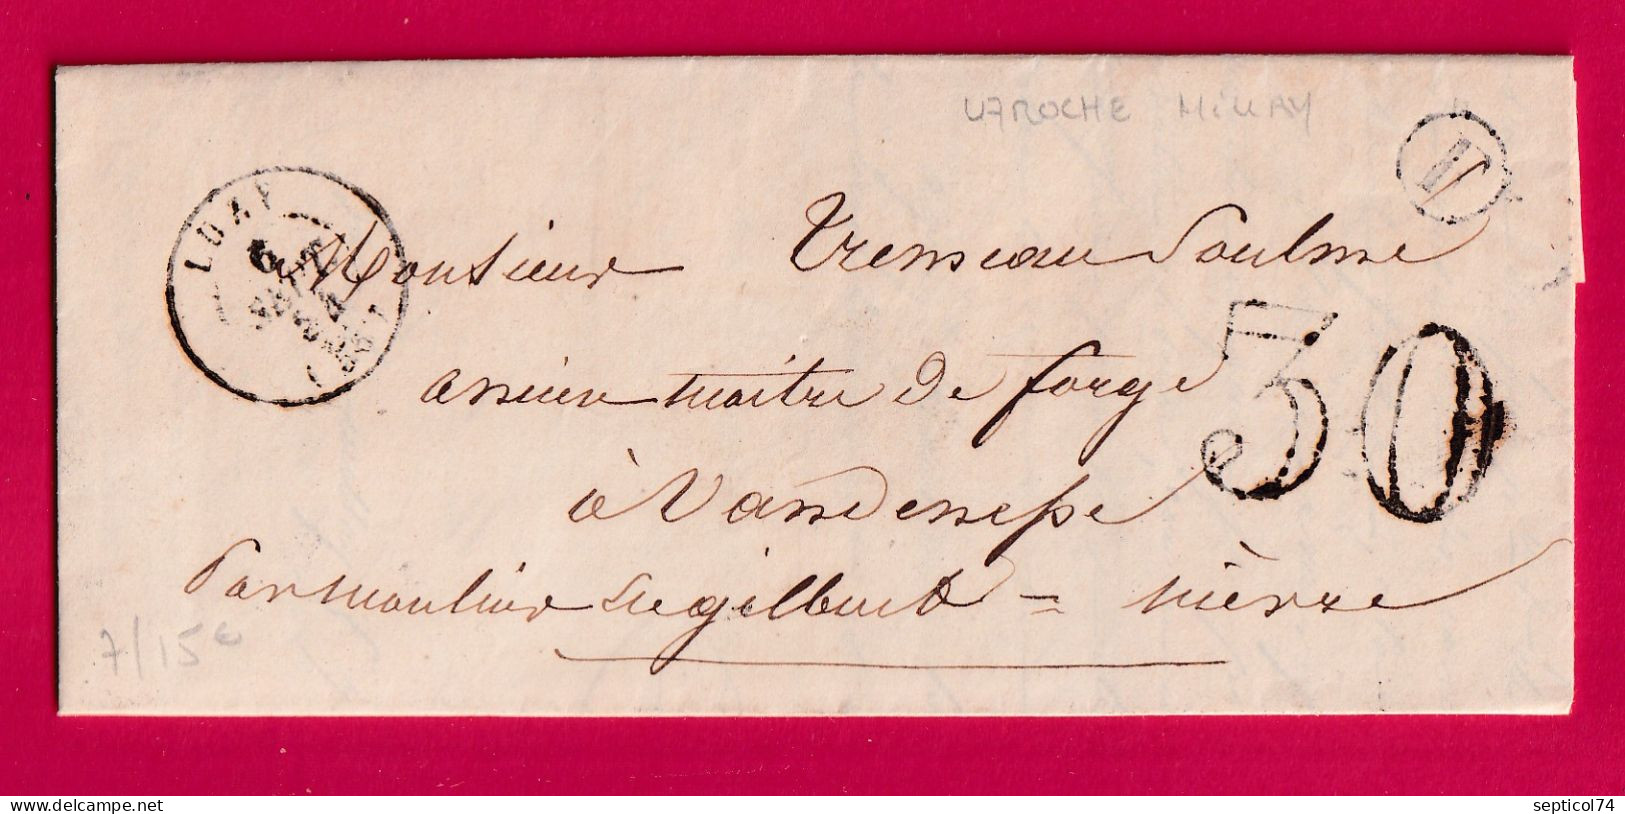 LAROCHE MILLAY
LUZY
6
SEPT
(56)
Monsieur Tremeau Soulmé
ancien maître de forge
à Vandenesse
Par moulins en gilbert = nièvre
30
7/15€
septicol74